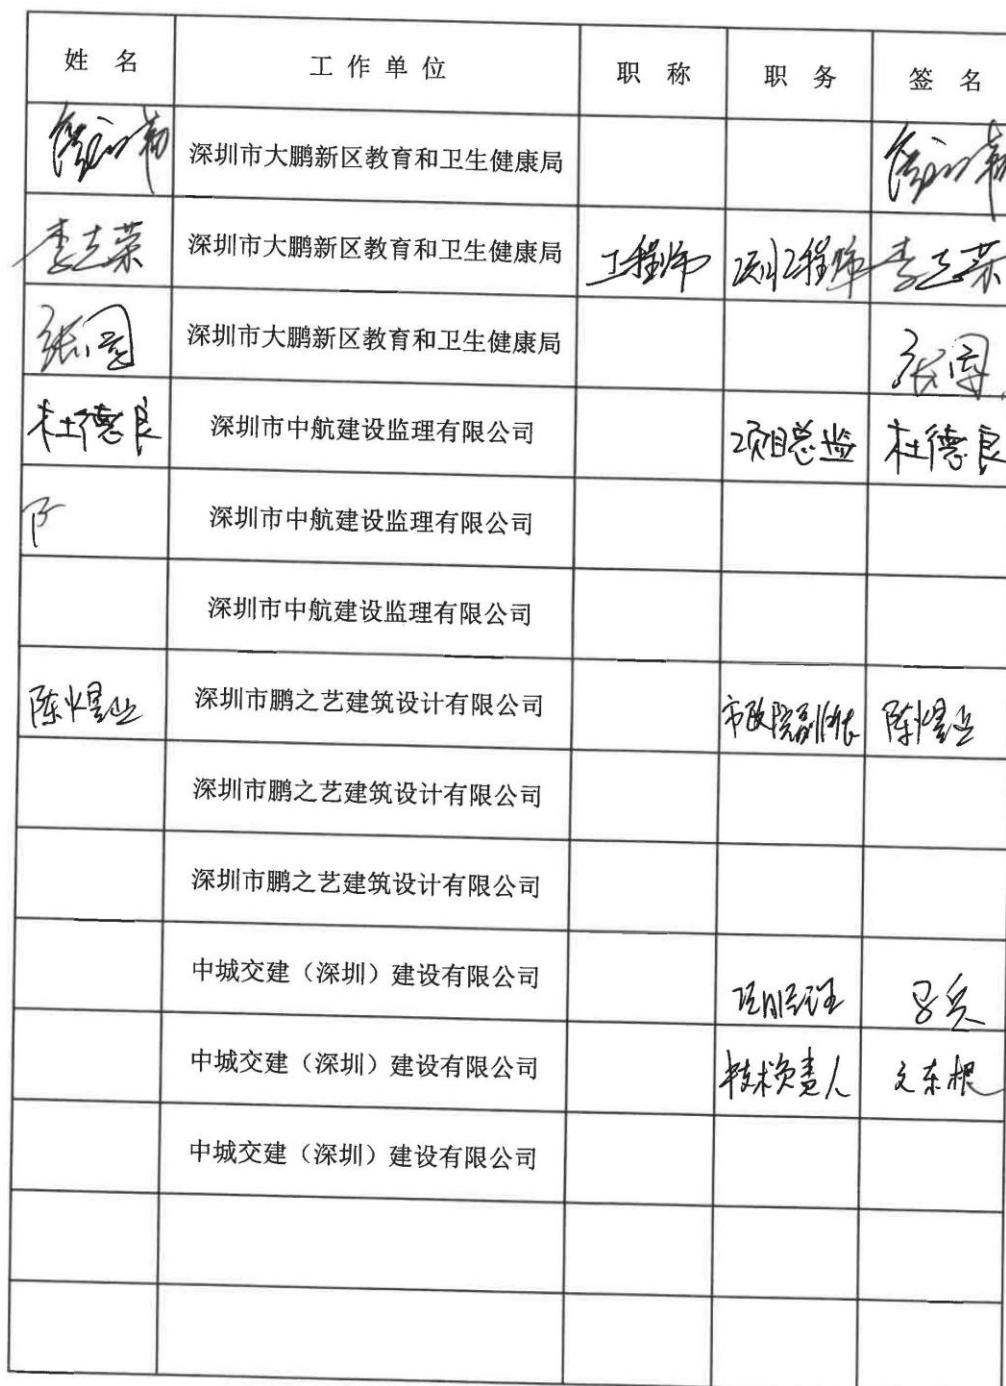 姓名 工作单位 职称 职务 签名
深圳市大鹏新区教育和卫生健康局
李志荣 深圳市大鹏新区教育和卫生健康局 工程师 李志荣
深圳市大鹏新区教育和卫生健康局
杜德良 深圳市中航建设监理有限公司 项目总监 杜德良
深圳市中航建设监理有限公司
深圳市中航建设监理有限公司
陈煜业 深圳市鹏之艺建筑设计有限公司 陈煜业
深圳市鹏之艺建筑设计有限公司
深圳市鹏之艺建筑设计有限公司
中城交建（深圳）建设有限公司 项目经理
中城交建（深圳）建设有限公司 技术负责人 文东根
中城交建（深圳）建设有限公司